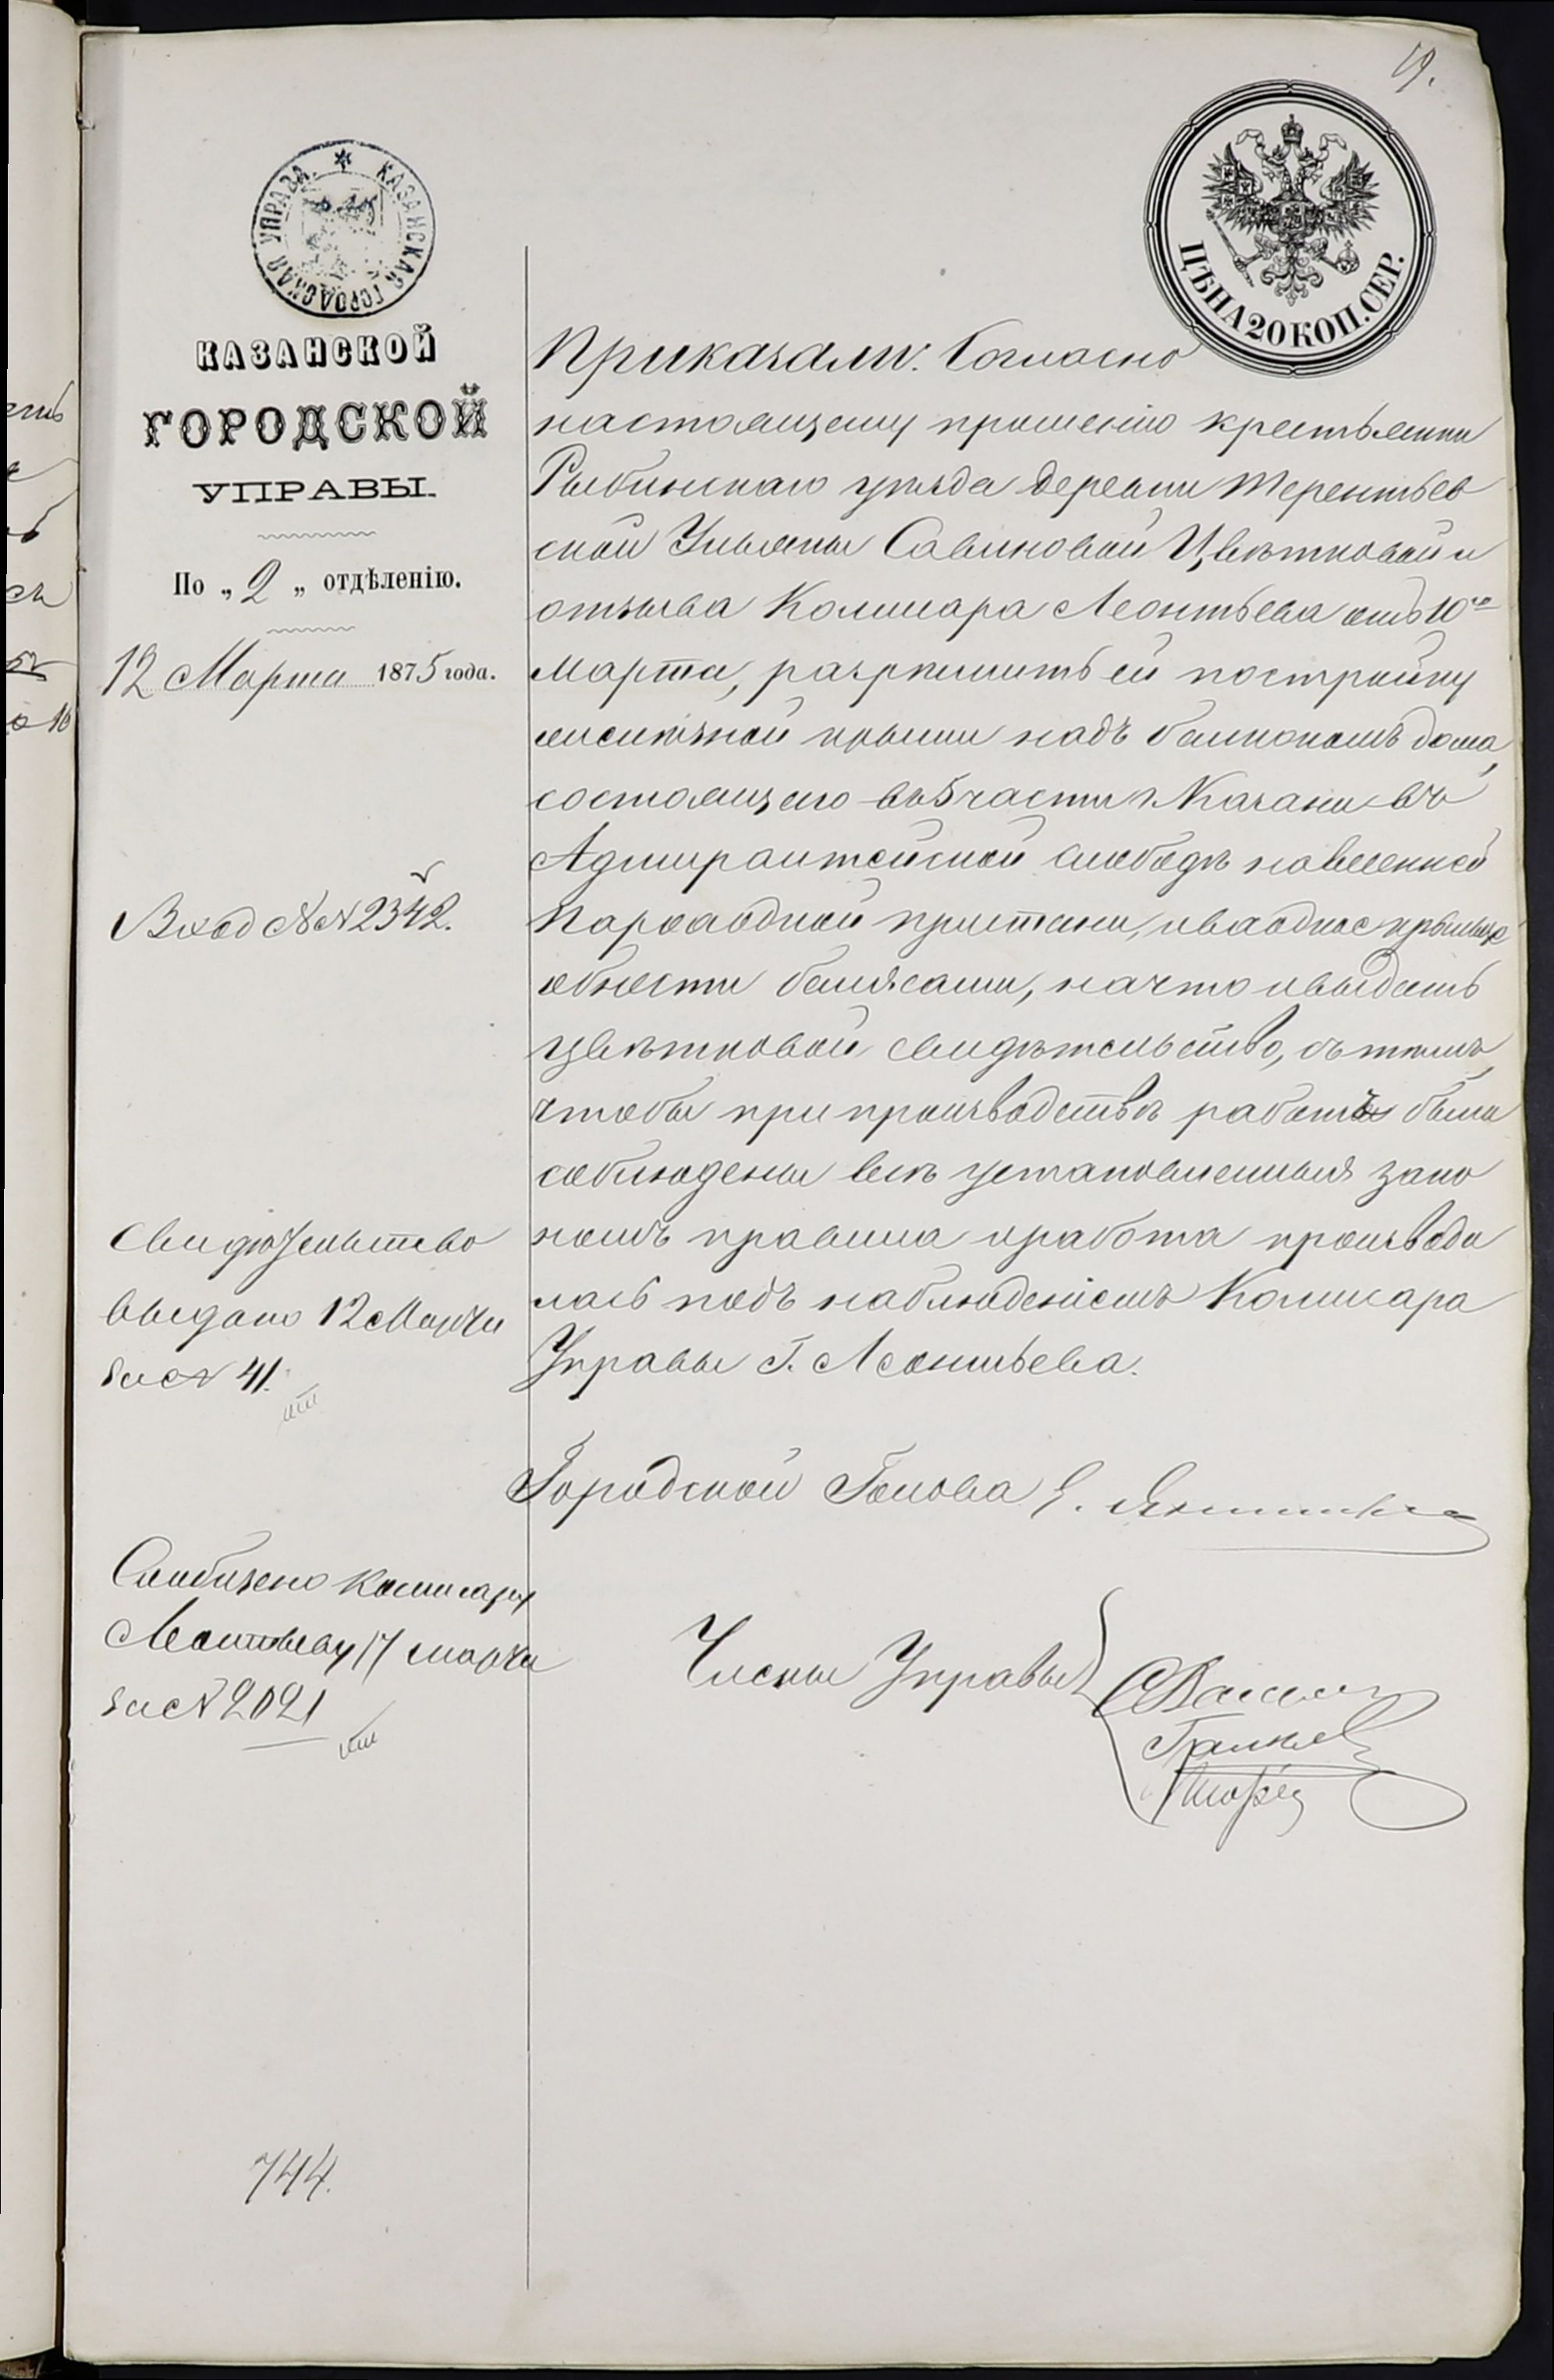 19.
КАЗАНСКАЯ ГОРОДСКАЯ УПРАВА
ЦѢНА 20 КОП. СЕР.
КАЗАНСКОЙ
ГОРОДСКОЙ
УПРАВЫ.
По „2„ отдѣленію.
12 Марта 1875 года.
Вход №№ 2342.
Свидѣтельство
выдано 12 Марта
за № 41.
Сообщено Комисару
Леонтьеву 17 марта
за № 2021
744.
Приказали: Согласно
настоящему прошенію крестьянки
Рыбинскаго уѣзда деревни Терентьев
ской Ульяны Савиновой Цвѣтковой и
отзыва Комисара Леонтьева отъ 10го
марта, разрѣшить ей постройку
желѣзной крыши надъ балкономъ дома,
состоящаго въ 5 части г. Казани въ
Адмиралтейской слободѣ на
пароходной пристани,
обнести балясами, на что и выдать
Цвѣтковой свидѣтельство, съ тѣмъ,
чтобы при производствѣ работъ были
соблюдены всѣ установленныя зако
номъ правила и работа производи
лась подъ наблюденіемъ Комисара
Управы Г. Леонтьева.
Городской Голова Э. Янишевскій
Члены Управы